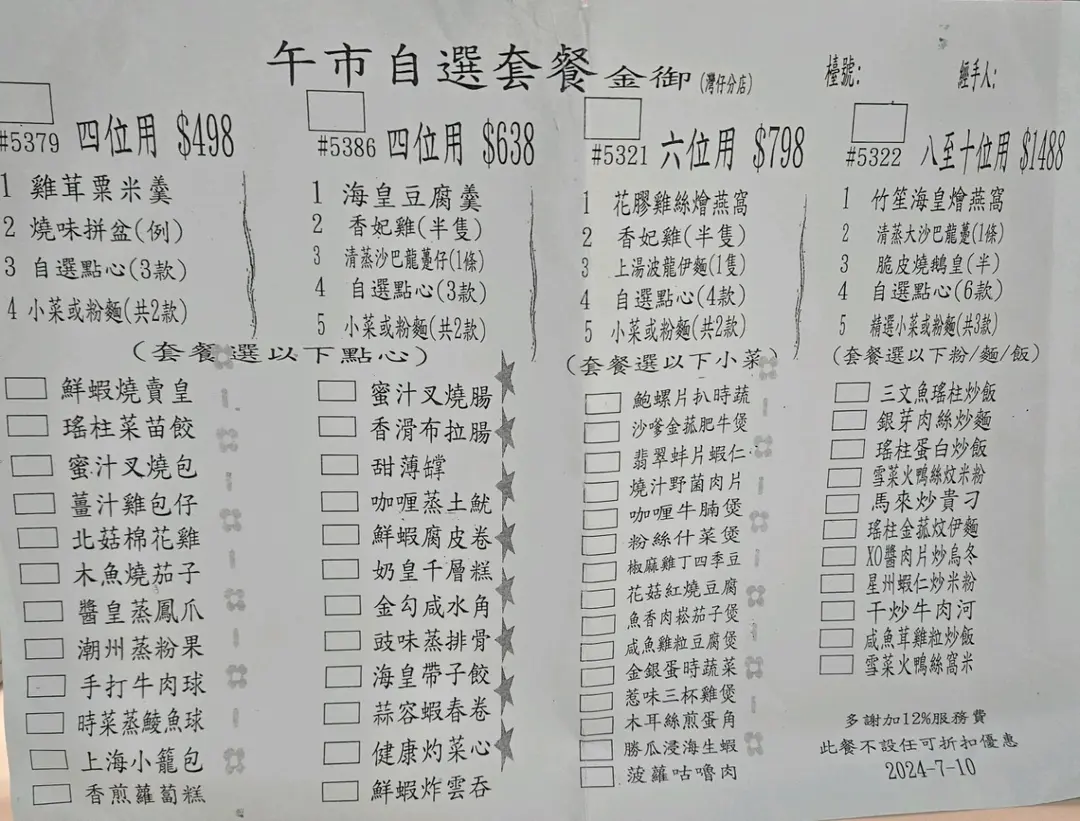 午市自選套餐 金御 (灣仔分店)
檯號: 經手人:
#5379 四位用 $498
1 雞茸粟米羹
2 燒味拼盆(例)
3 自選點心(3款)
4 小菜或粉麵(共2款)
#5386 四位用 $638
1 海皇豆腐羹
2 香妃雞(半隻)
3 清蒸沙巴龍躉仔(1條)
4 自選點心(3款)
5 小菜或粉麵(共2款)
#5321 六位用 $798
1 花膠雞絲燴燕窩
2 香妃雞(半隻)
3 上湯波龍伊麵(1隻)
4 自選點心(4款)
5 小菜或粉麵(共2款)
#5322 八至十位用 $1488
1 竹笙海皇燴燕窩
2 清蒸大沙巴龍躉(1條)
3 脆皮燒鵝皇(半)
4 自選點心(6款)
5 精選小菜或粉麵(共3款)
(套餐選以下點心)
鮮蝦燒賣皇
瑤柱菜苗餃
蜜汁叉燒包
薑汁雞包仔
北菇棉花雞
木魚燒茄子
醬皇蒸鳳爪
潮州蒸粉果
手打牛肉球
時菜蒸鯪魚球
上海小籠包
香煎蘿蔔糕
蜜汁叉燒腸
香滑布拉腸
甜薄罉
咖喱蒸土魷
鮮蝦腐皮卷
奶皇千層糕
金勾咸水角
豉味蒸排骨
海皇帶子餃
蒜容蝦春卷
健康灼菜心
鮮蝦炸雲吞
(套餐選以下小菜)
鮑螺片扒時蔬
沙嗲金菰肥牛煲
翡翠蚌片蝦仁
燒汁野菌肉片
咖喱牛腩煲
粉絲什菜煲
椒麻雞丁四季豆
花菇紅燒豆腐
魚香肉崧茄子煲
咸魚雞粒豆腐煲
金銀蛋時蔬菜
惹味三杯雞煲
木耳絲煎蛋角
勝瓜浸海生蝦
菠蘿咕嚕肉
(套餐選以下粉/麵/飯)
三文魚瑤柱炒飯
銀芽肉絲炒麵
瑤柱蛋白炒飯
雪菜火鴨絲炆米粉
馬來炒貴刁
瑤柱金菰炆伊麵
XO醬肉片炒烏冬
星州蝦仁炒米粉
干炒牛肉河
咸魚茸雞粒炒飯
雪菜火鴨絲窩米
多謝加12%服務費
此餐不設任可折扣優惠
2024-7-10